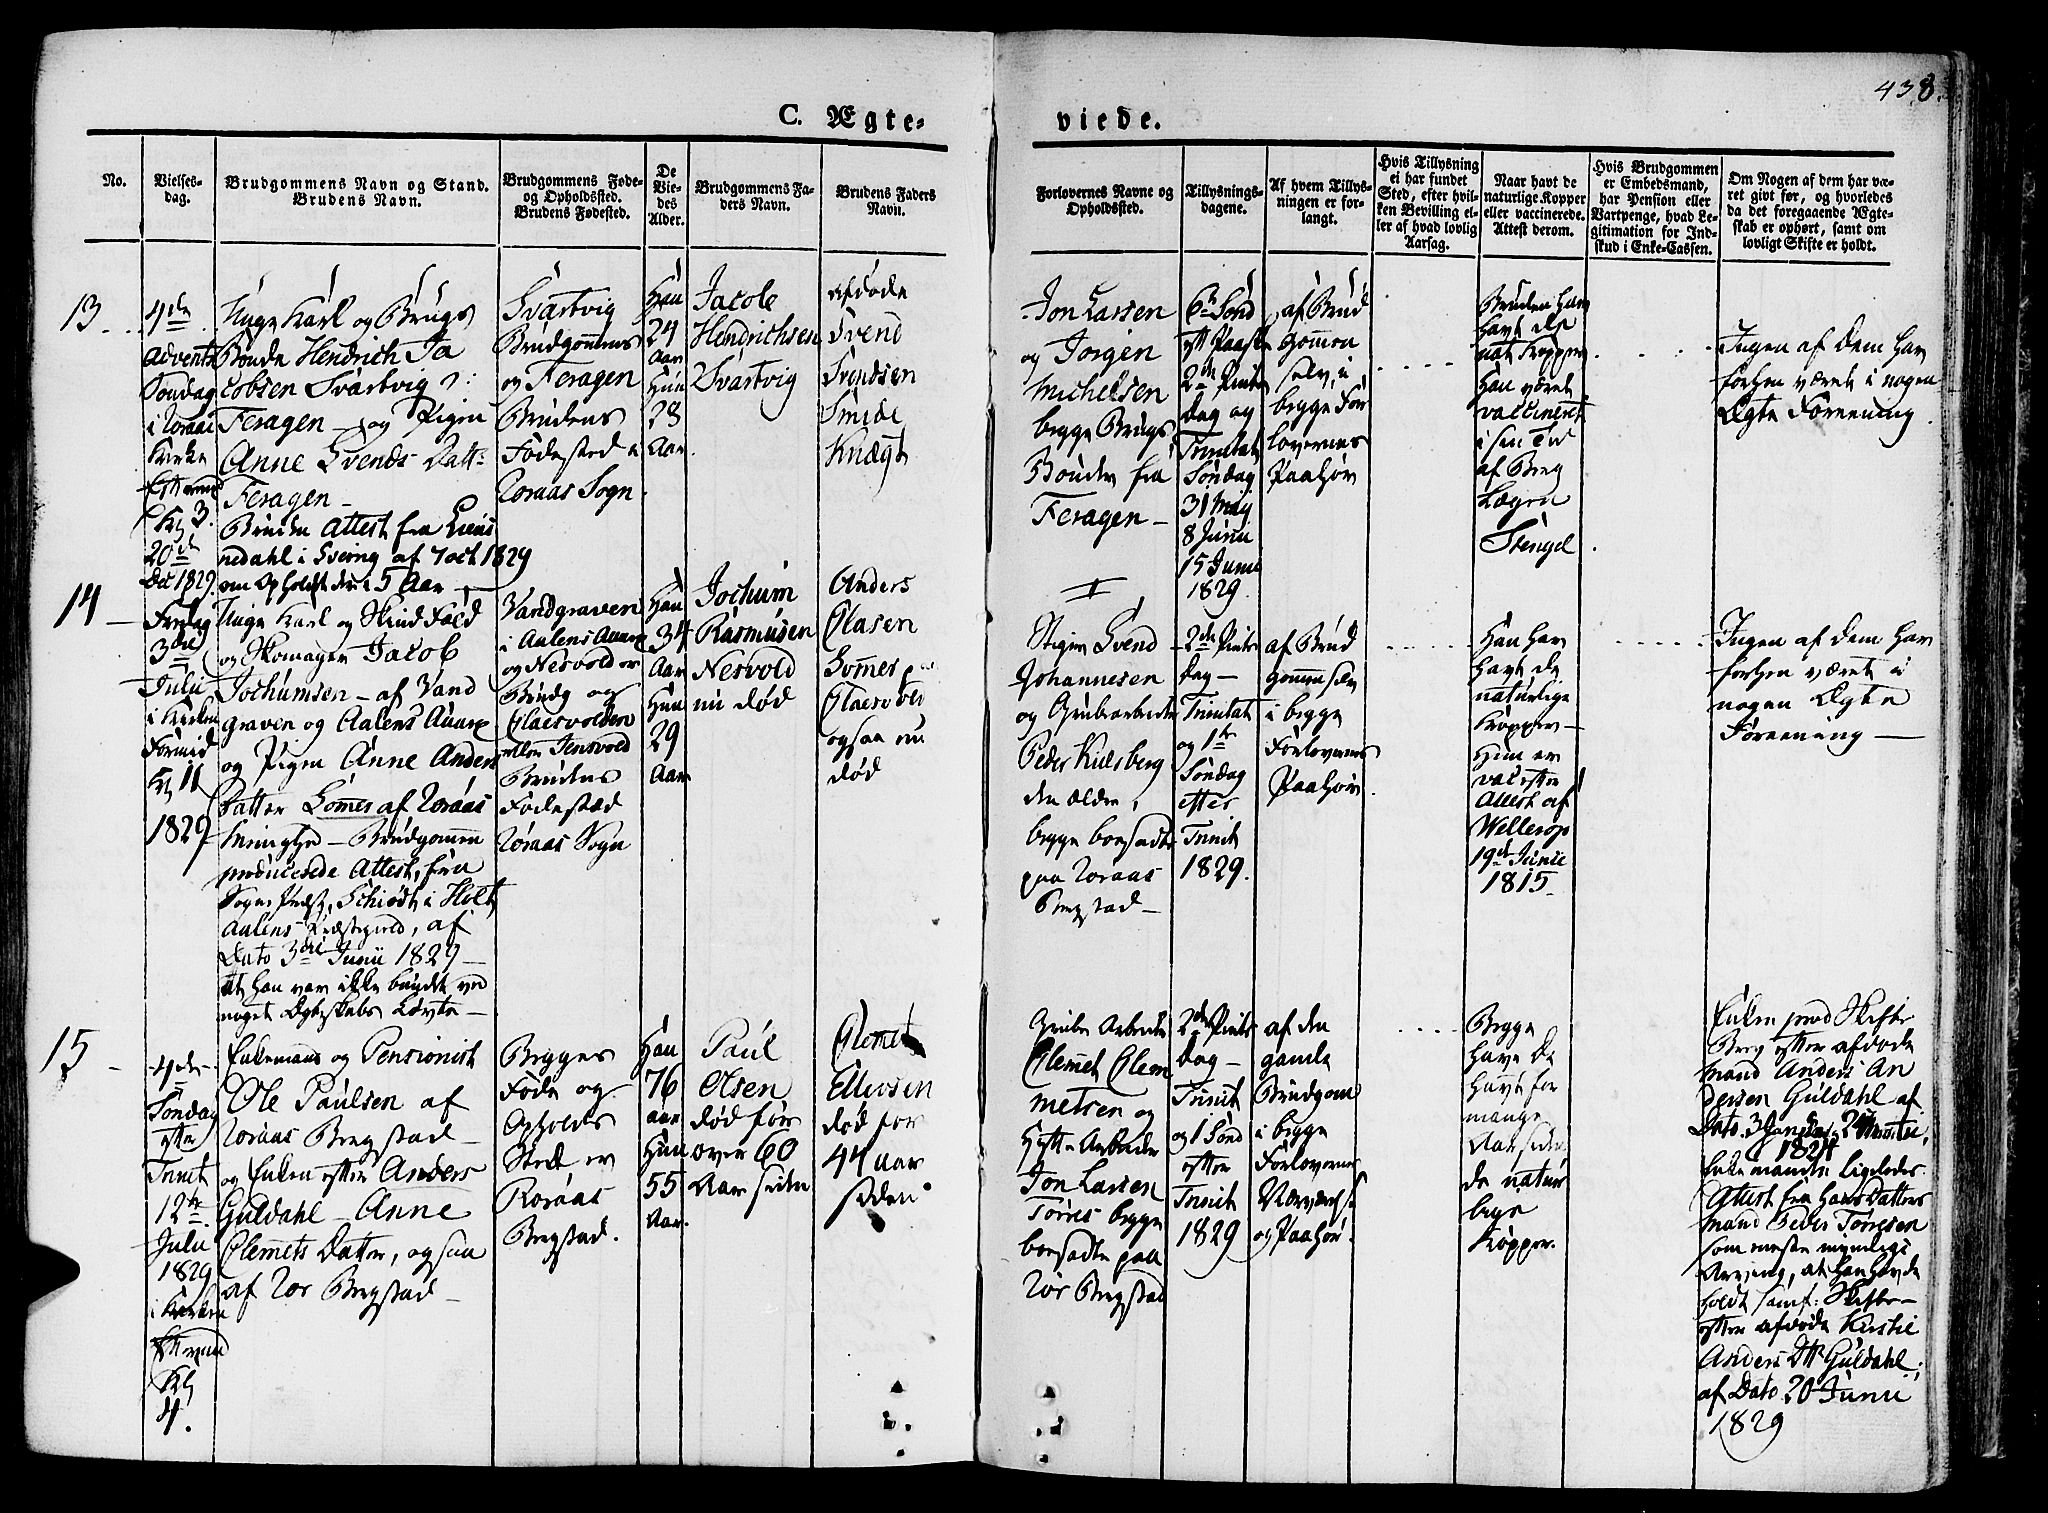 438.
C. Ægte-
viede.
No.
Vielses-
dag.
Brudgommens Navn og Stand.
Brudens Navn.
Brudgommens Føde-
og Opholdssted.
Brudens Fødested.
De
Vie-
des
Alder.
Brudgommens Fa-
ders Navn.
Brudens Faders
Navn.
Forlovernes Navne og
Opholdssted.
Tillysnings-
dagene.
Af hvem Tillys-
ningen er for-
langt.
Hvis Tillysning
ei har fundet
Sted, efter hvil-
ken Bevilling el-
ler af hvad lovlig
Aarsag.
Naar havt de
naturlige Kopper
eller vaccinerede.
Attest derom.
Hvis Brudgommen
er Embedsmand,
har Pension eller
Vartpenge, hvad Le-
gitimation for Ind-
skud i Enke-Cassen.
Om Nogen af dem har væ-
ret givt før, og hvorledes
da det foregaaende Ægte-
skab er ophørt, samt om
lovligt Skifte er holdt.
13
4de
Advents
Søndag
i Røraas
Kirke
Kl 3.
20de
Dec 1829.
Unge Karl og Brugs
Bonde Hendrich Ja
cobsen Svartvig
Feragen - og Pigen
Anne Svends Datt:
Feragen -
Attest fra
af 7 oct 1829
om Opholdt der i 5 Aar
Svartvig
Brudgommens
og Feragen
Brudens
Fødested i
Røraas Sogn.
Han
24
Aar
Hun
28
Aar
Jacob
Hendrichsen
Svartvig
afdøde
Svend
Svendsen
Smide
Knægt
Jon Larsen
og Jørgen
Michelsen
begge Brugs
Bønder fra
Feragen -
6te Sønd
eft Paaske
2den Pintse
Dag og
Trinitat
Søndag
31 May
8 Junii
15 Junii
1829.
af Brud
gommen
selv i
begge For
lovernes
Paahør
Bruden har
havt de
nat Kopper
Han været
vaccineret
i sin Tid
af Berg
Lægen
Stengel
Ingen af dem har
forhen været i nogen
Ægte Foreening
14
Fredag
3die
Julii
i Kirken
Formid
Kl 11
1829
Unge Karl og
og Skomager Jacob
Jochumsen - af Vand
graven og Aalens Annex
og Pigen Anne Anders
Datter Sommer af Røraas
Menighed - Brudgommen
producerede Attest, fra
Sogne Præst, Schiødt i Holt
Aalens Præstegield, af
Dato 3die Junii 1829 -
at han var ikke bundet ved
noget Ægteskabs Løvte -
Vandgraven
i Aalens Annex
og Nesvold er
Brudg og
Claesvolden
eller Jensvold
Brudens
Fødested
Røraas Sogn
Han
34
Aar
Hun
29
Aar
Jochum
Rasmusen
Nesvold
nu død
Anders
Olasen
Sommer
Claesvold
ogsaa nu
død
Stiger Svend
Johannesen
og Grubearbeider
Peder Kulsberg
den ældre,
begge boesadte
paa Røraas
Bergstad -
2den Pintse
Dag -
Trinitat
og 1te
Søndag
efter
Trinit
1829.
af Brud
gommen selv
i begge
Forlovernes
Paahør.
Han har
havt de
naturlige
Kopper -
Hun er
vac efter
Attest af
Wellerop
19de Junii
1815.
Ingen af dem har
forhen været i
nogen Ægte
Foreening -
15
4de
Søndag
efter
Trinit
12te
Julii
1829
i Kirken
Kl
4.
Enkemand og Pensionist
Ole Paulsen af
Røraas Bergstad -
og Enken efter Anders
Guldahl - Anne
Clemets Datter, ogsaa
af Rør Bergstad -
Begges
Føde og
Opholds
Sted er
Røraas
Bergstad.
Han
76
aar
Hun
55
Aar.
Paul
Olsen
død før
over 60
Aar siden
Clemet
Ellevsen
død for
44 aar
siden
Grube Arbeider
Clemet Clem
metsen og
Hytte Arbeider
Jon Larsen
Tørres begge
boesadte paa
Rør Bergstad
2den Pintse
Dag -
Trinit
og 1 Sønd
efter
Trinit
1829
af den
gamle
Brudgom
i begge
Forlovernes
og Paahør.
Begge
have de
havt for
mange
Aar siden
de natur
lige
Kopper.
Enken prod Skifte
Brev efter afdøde
Mand Anders An
dersen Guldahl af
Enkemanden ligeledes
Attest fra hans Datters
Mand Peder Tørresen
som eneste myndige
Arving, at han havde
holdt samf: Skifte -
efter afdøde Kirstie
Anders Dtr Guldahl,
af Dato 20 Junii
1829